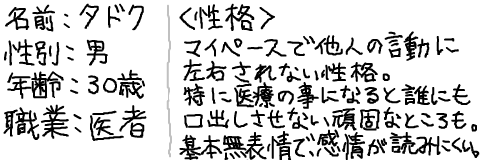 名前：タドク
性別：男
年齢：30歳
職業：医者
〈性格〉
マイペースで他人の言動に
左右されない性格。
特に医療の事になると誰にも
口出しさせない頑固なところも。
基本無表情で、感情が読みにくい。